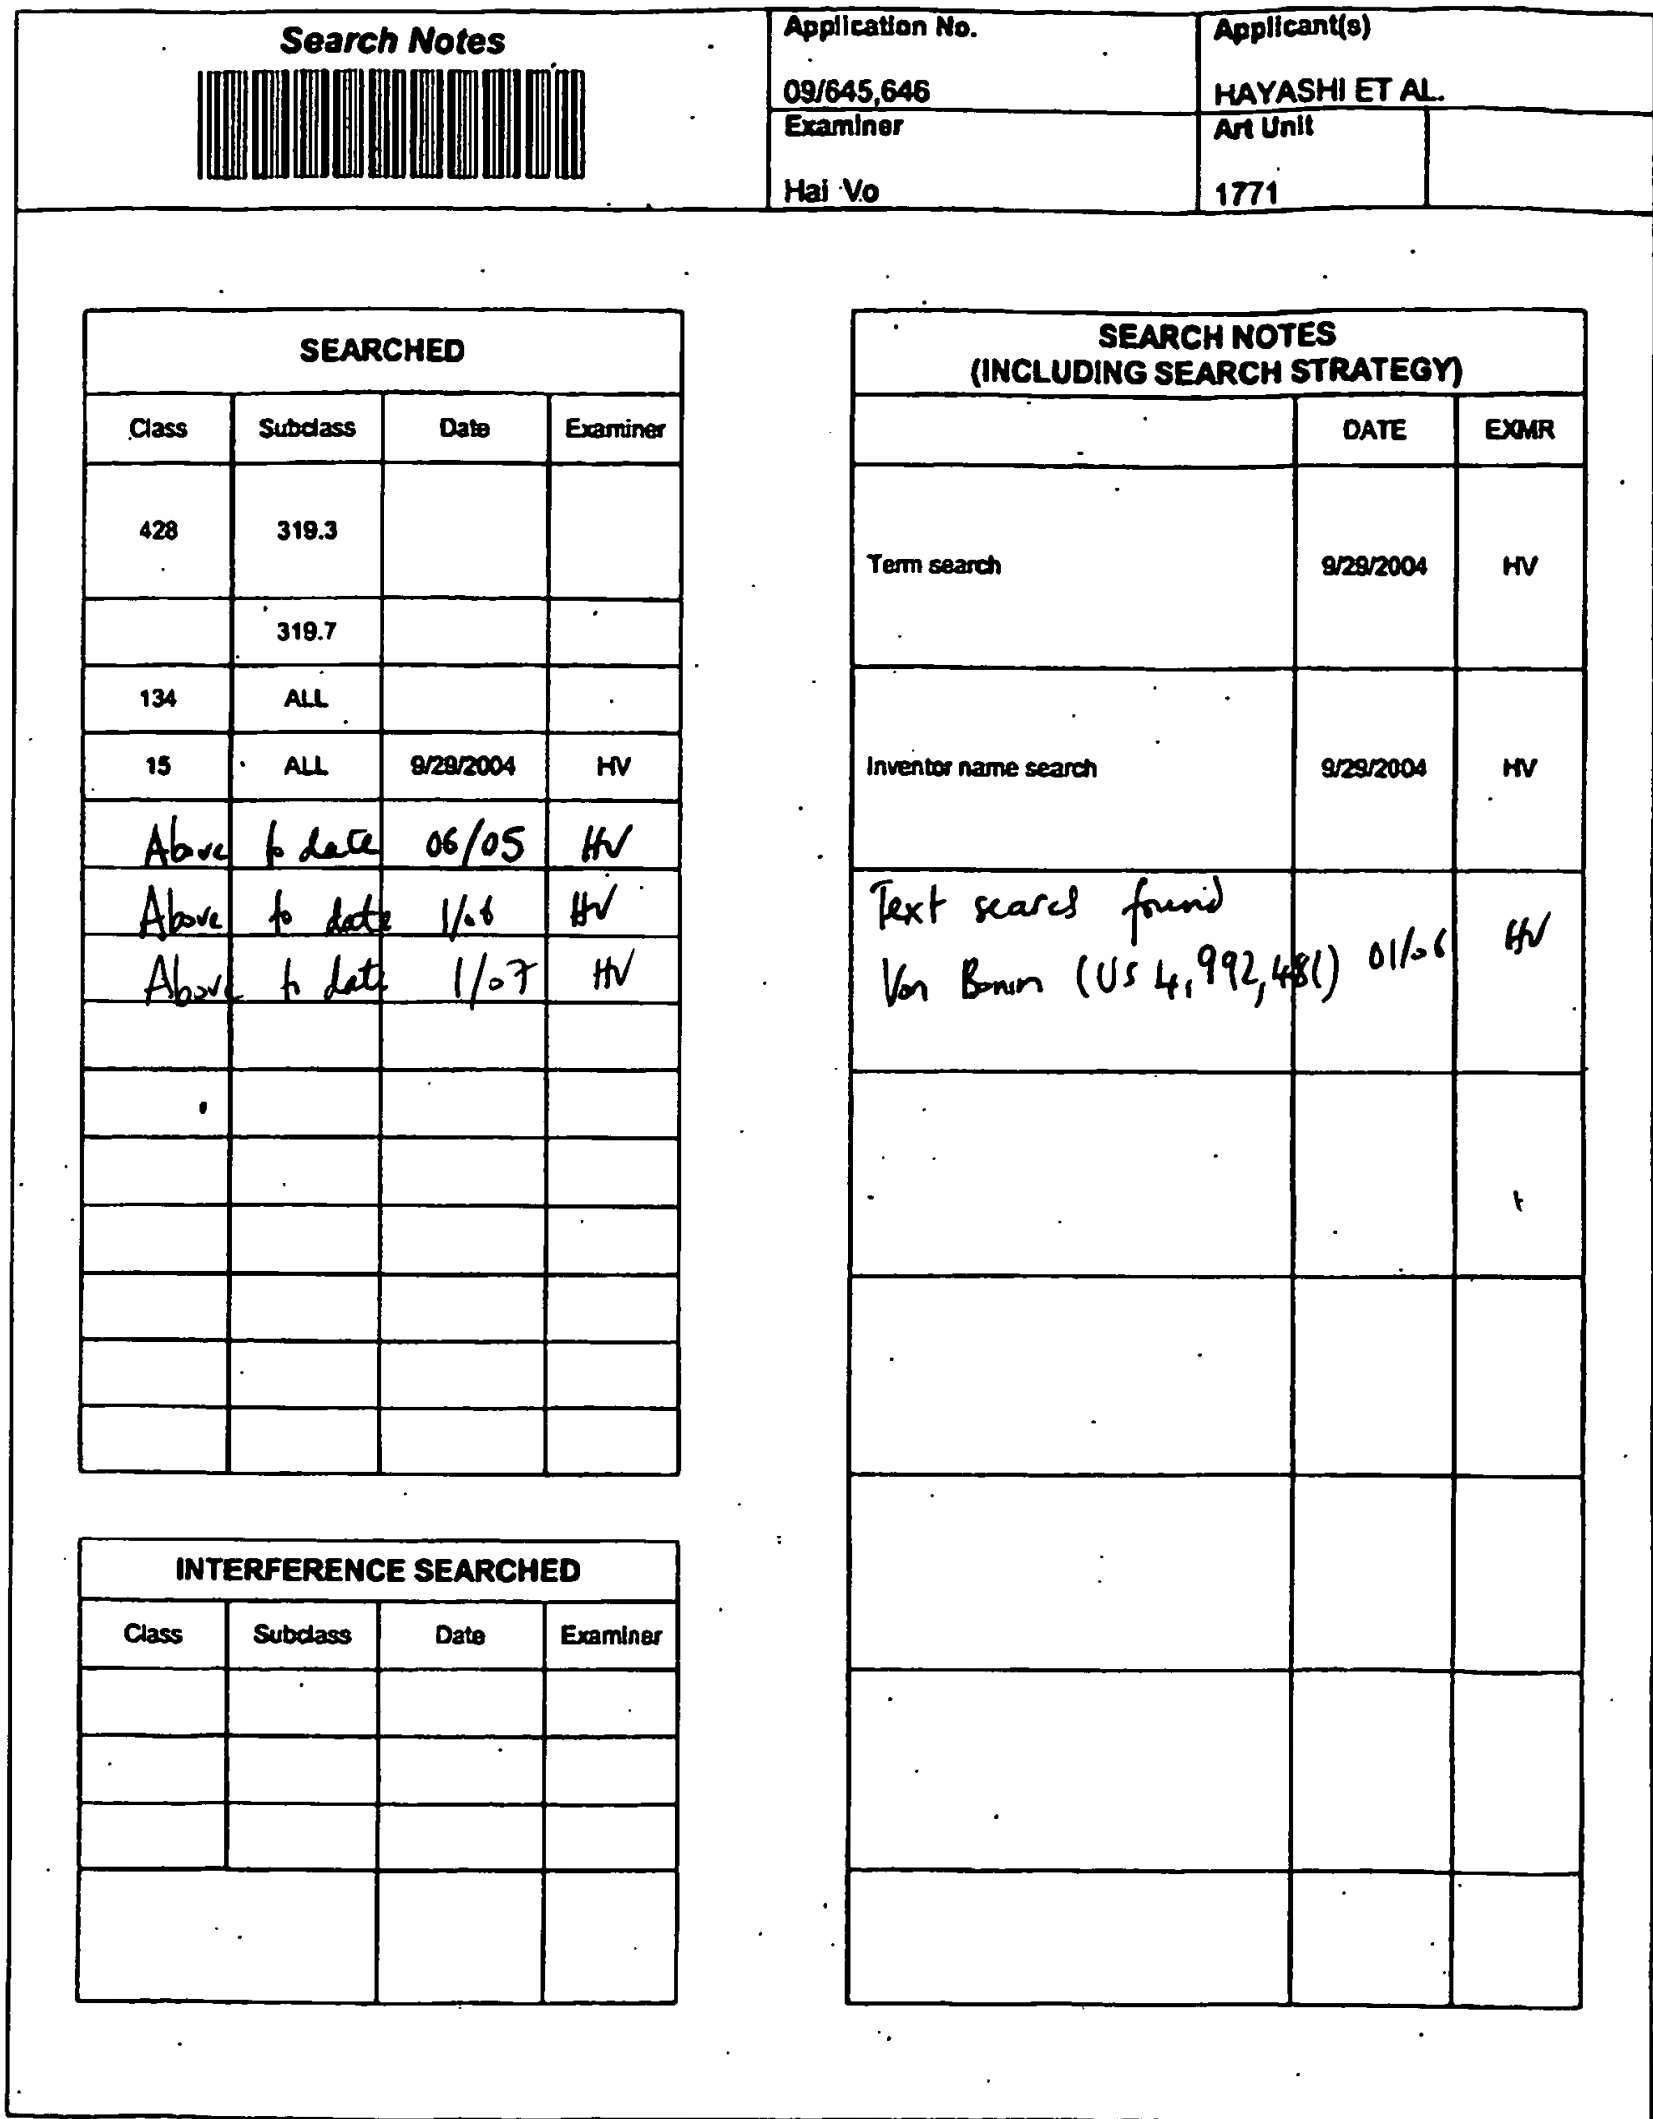 Search Notes
Application No.
09/645,646
Applicant(s)
HAYASHI ET AL.
Examiner
Hai Vo
Art Unit
1771
SEARCHED
Class Subclass Date Examiner
428 319.3
319.7
134 ALL
15 ALL 9/29/2004 HV
Above to date 06/05 HV
Above to date 1/06 HV
Above to date 1/07 HV
INTERFERENCE SEARCHED
Class Subclass Date Examiner
SEARCH NOTES
(INCLUDING SEARCH STRATEGY)
DATE EXMR
Term search 9/29/2004 HV
Inventor name search 9/29/2004 HV
Text search found
Von Bonin (US 4,992,481) 01/06 HV